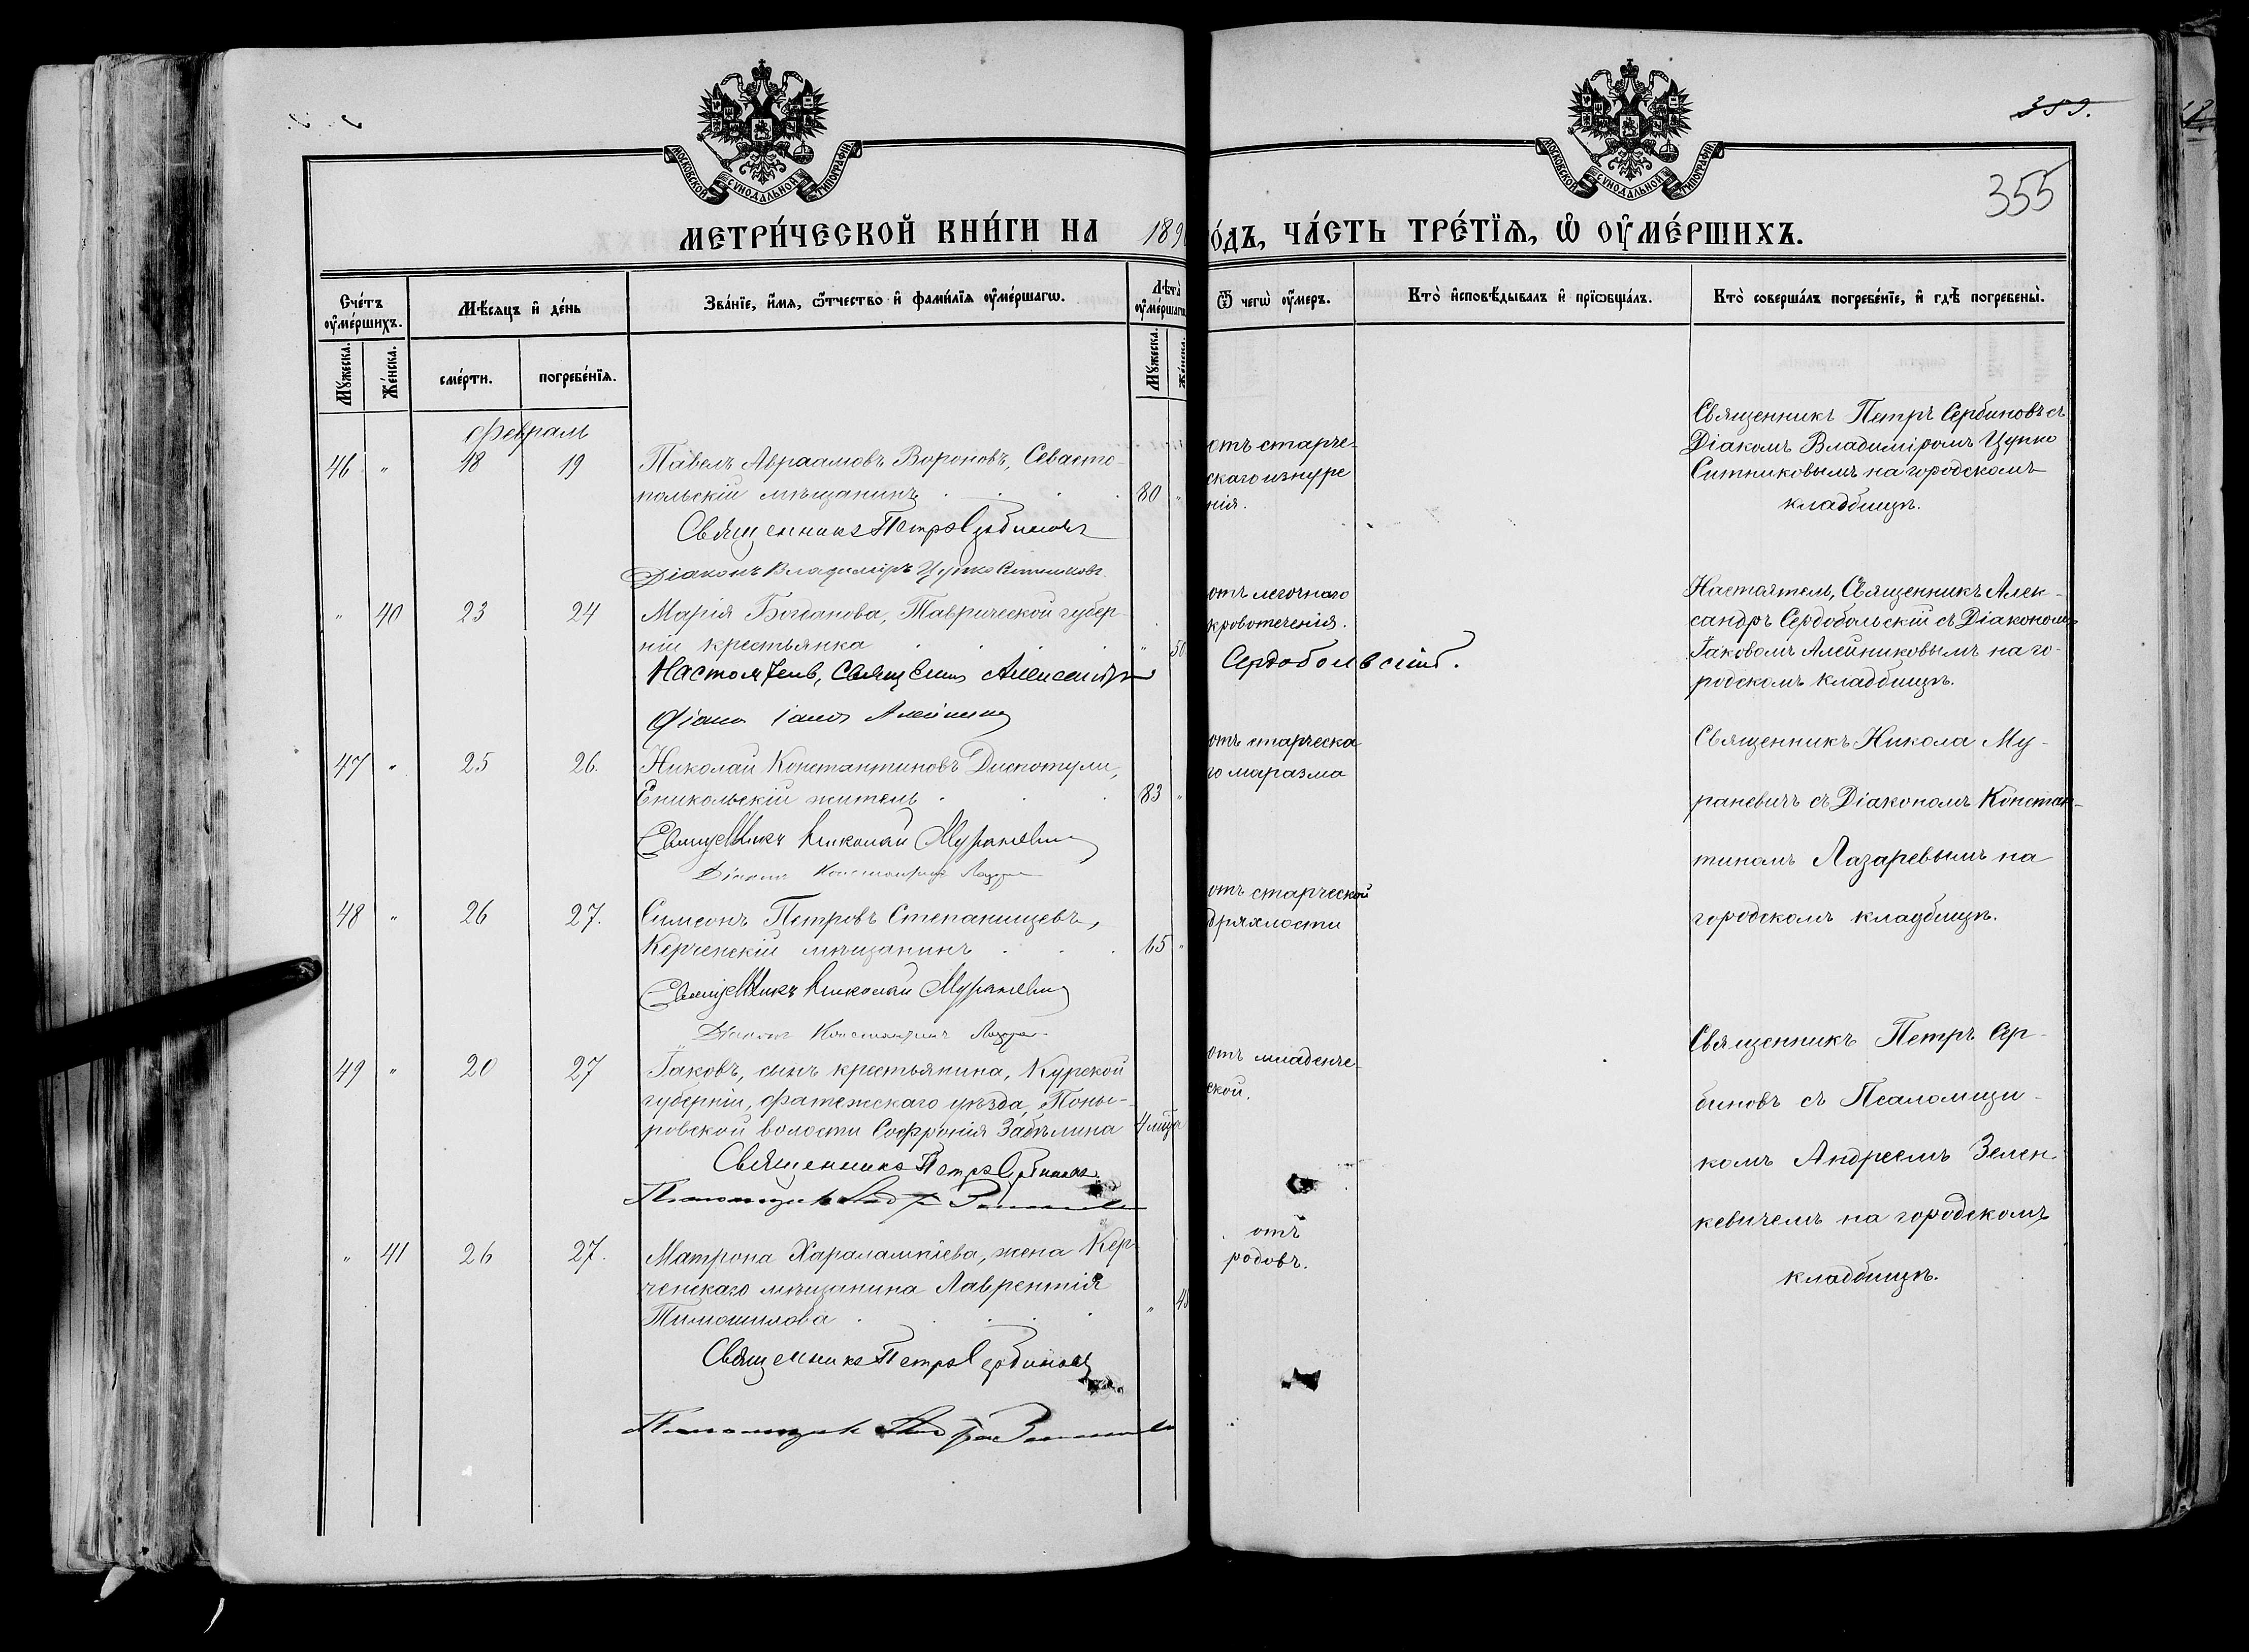 МОСКОВСКОЙ СУНОДАЛЬНОЙ ТИПОГРАФІИ
МОСКОВСКОЙ СУНОДАЛЬНОЙ ТИПОГРАФІИ
359.
355
МЕТРИ́ЧЕСКОЙ КНИ́ГИ НА 189
о́дъ, ЧА́СТЬ ТРЕ́ТЇѦ, Ѡ҆ ОУ҆МЕ́РШИХЪ.
Сче́тъ оу҆ме́ршихъ.
Мꙋ́жеска.
Же́нска.
Мѣ́сяцъ и҆ де́нь
сме́рти.
погребе́нїѧ.
Зва́нїе, и҆́мѧ, ѻ҆́тчество и҆ фами́лїѧ оу҆ме́ршагѡ.
Лѣта̀ оу҆ме́ршагѡ
Мꙋ́жеска.
Же́нска.
Ѿ чегѡ̀ оу҆́меръ.
Кто̀ и҆сповѣ́дывалъ и҆ прїѡбща́лъ.
Кто̀ соверша́лъ погребе́нїе, и҆ гдѣ̀ погребены̀.
Февраль
46 " 18 19 Павелъ Авраамовъ Вороновъ, Севасто-
польскій мѣщанинъ 80 "
Священникъ Петръ Сербиновъ
Діаконъ Владиміръ Цупко Ситниковъ
отъ старче-
скаго изнуре
нія.
Священникъ Петръ Сербиновъ съ
Діакомъ Владиміромъ Цупко
Ситниковымъ на городскомъ
кладбищѣ.
" 40 23 24 Марія Богданова, Таврической губер-
ніи крестьянка " 50
Настоятель, Священ Александръ
Сердобольскій.
Діакон Іаков Алейников
отъ легочнаго
кровотеченія.
Настоятель, Священникъ Алек-
сандръ Сердобольскій съ Діакономъ
Іаковомъ Алейниковымъ на го-
родскомъ кладбищѣ.
47 " 25 26. Николай Константиновъ Диспотули,
Еникольскій житель 83 "
Священникъ Николай Мураневич
Діаконъ Константинъ Лазарев
отъ старческа
го маразма
Священникъ Никола Му-
раневичъ съ Діакономъ Констан-
тиномъ Лазаревымъ на
городскомъ кладбищѣ.
48 " 26 27. Симеонъ Петровъ Степанищевъ,
Керченскій мѣщанинъ 65 "
Священникъ Николай Мураневич
Діаконъ Константинъ Лазарев
отъ старческой
дряхлости
49 " 20 27 Іаковъ, сынъ крестьянина, Курской
губерніи, Фатежскаго уѣзда, Поны-
ровской волости Софронія Забѣлина 4 мѣс
Священникъ Петръ Сербиновъ
Псаломщикъ Андрей Зеленкевич
отъ младенче-
ской.
Священникъ Петръ Сер-
биновъ съ Псаломщи-
комъ Андреемъ Зелен-
кевичемъ на городскомъ
кладбищѣ.
" 41 26 27. Матрона Харалампіева, жена Кер
ченскаго мѣщанина Лаврентія
Тимошилова " 48
Священникъ Петръ Сербиновъ
Псаломщикъ Андрей Зеленкевич
отъ
родовъ.